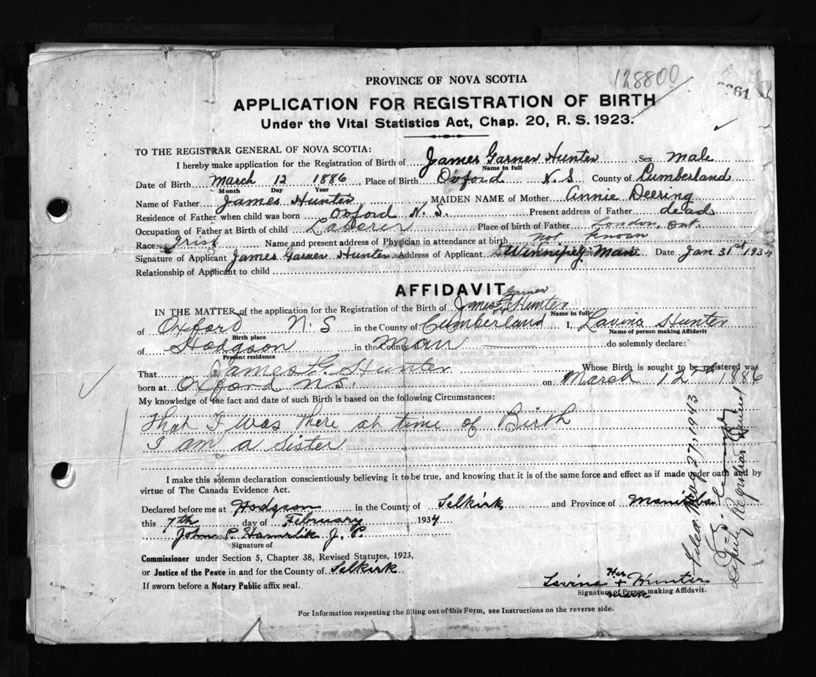 128800
PROVINCE OF NOVA SCOTIA
APPLICATION FOR REGISTRATION OF BIRTH
Under the Vital Statistics Act, Chap. 20, R. S. 1923.
TO THE REGISTRAR GENERAL OF NOVA SCOTIA:
I hereby make application for the Registration of Birth of James Garner Hunter Sex Male
Name in full
Date of Birth March 12 1886 Place of Birth Oxford N.S County of Cumberland
Month Day Year
Name of Father James Hunter MAIDEN NAME of Mother Annie Deering
Residence of Father when child was born Oxford N.S. Present address of Father dead
Occupation of Father at Birth of child Laberer Place of birth of Father London, Ont.
Race Irish Name and present address of Physician in attendance at birth Not known
Signature of Applicant James Garner Hunter Address of Applicant Winnipeg Man Date Jan 31st 1934
Relationship of Applicant to child
AFFIDAVIT
IN THE MATTER of the application for the Registration of the Birth of James Garner Hunter
Name in full
of Oxford N.S in the County of Cumberland I, Lavina Hunter
Birth place Name of person making Affidavit
of Hodgson in the Man do solemnly declare:
Present residence
That James G. Hunter Whose Birth is sought to be registered was
born at Oxford N.S. on March 12th 1886
My knowledge of the fact and date of such Birth is based on the following Circumstances:
That I was there at time of Birth
I am a sister
I make this solemn declaration conscientiously believing it to be true, and knowing that it is of the same force and effect as if made under oath and by
virtue of The Canada Evidence Act.
Declared before me at Hodgson in the County of Selkirk and Province of Manitoba
this 7th day of February 1934
John P. J. P.
Signature of
Commissioner under Section 5, Chapter 38, Revised Statutes, 1923,
or Justice of the Peace in and for the County of Selkirk
If sworn before a Notary Public affix seal.
Lavina Her + Hunter
mark
Signature of Person making Affidavit.
For Information respecting the filling out of this Form, see Instructions on the reverse side.
Filed 27, 1943
Deputy Registrar General